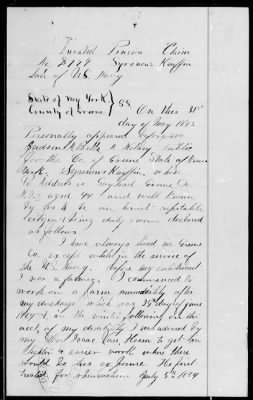 Invalid Pension Claim
No. 8779 Syrenous Kniffin
Late of US Navy
State of New York
County of Greene } SS. On this 31st
day of May 189
Personally appeared before me
Judson A. Betts a Notary Public
for the Co. of Greene State of New
York. Syrenus Kniffin whose
P.O. Address is Gayhead Greene Co.
N.Y. aged 44 and well known
by me to be an honest reputable
citizen & being duly sworn declared
as follows.
I have always lived in Greene
Co. except whilst in the service of
the U.S. Navy. before my enlistment
I was a farmer. I commenced to
work on a farm immediately after
my discharge which was 29th day of June
and in the winter following on
acct. of my disability I was advised by
my Doc. Isaac Van Hoesen to get some
lighter & easier work where there
would be less exposure. He first
treated for rheumatism July 5th 1864